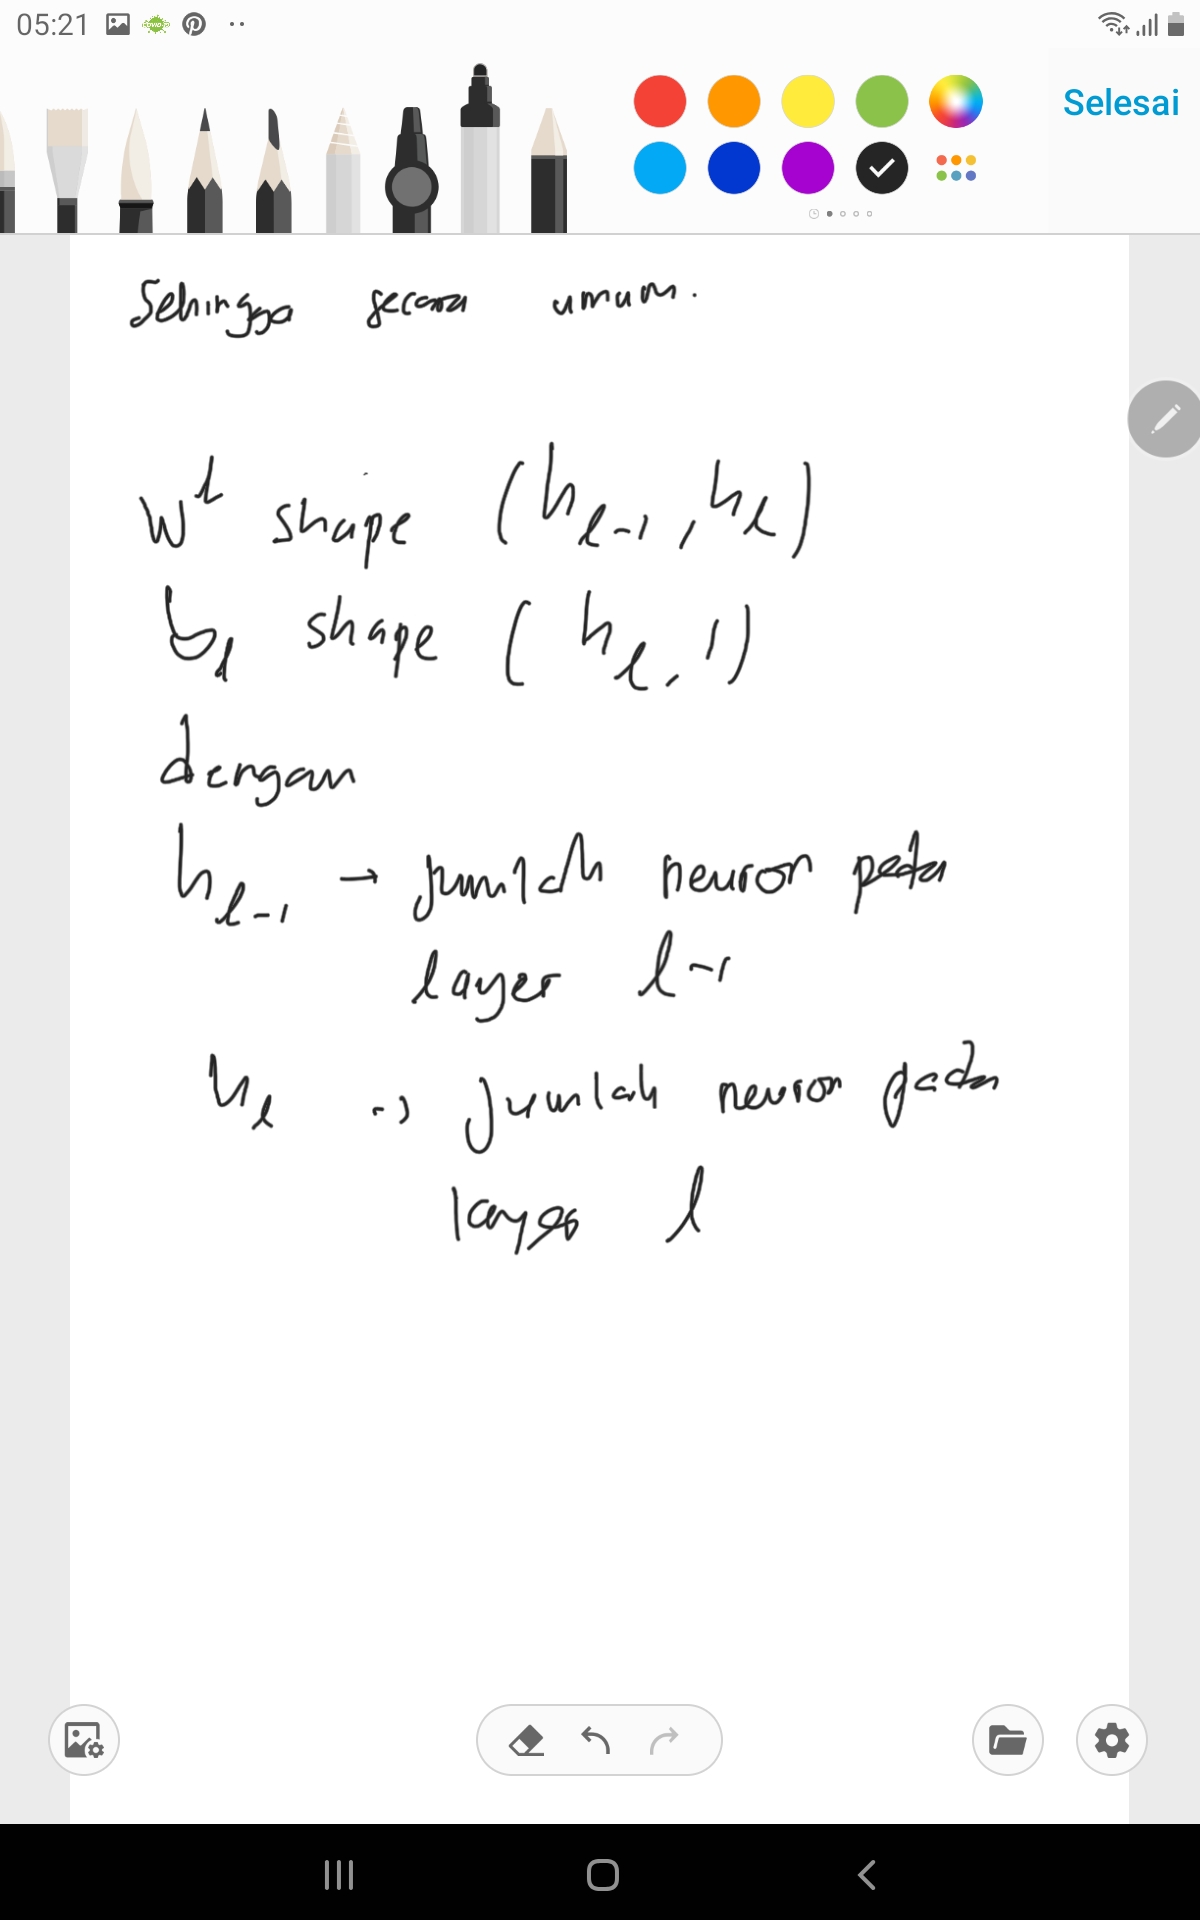 05:21
Selesai
Sehingga secara umum.
W^l shape (h_{l-1}, h_l)
b_l shape (h_l, 1)
dengan
h_{l-1} → jumlah neuron pada
layer l-1
h_l → jumlah neuron pada
layer l